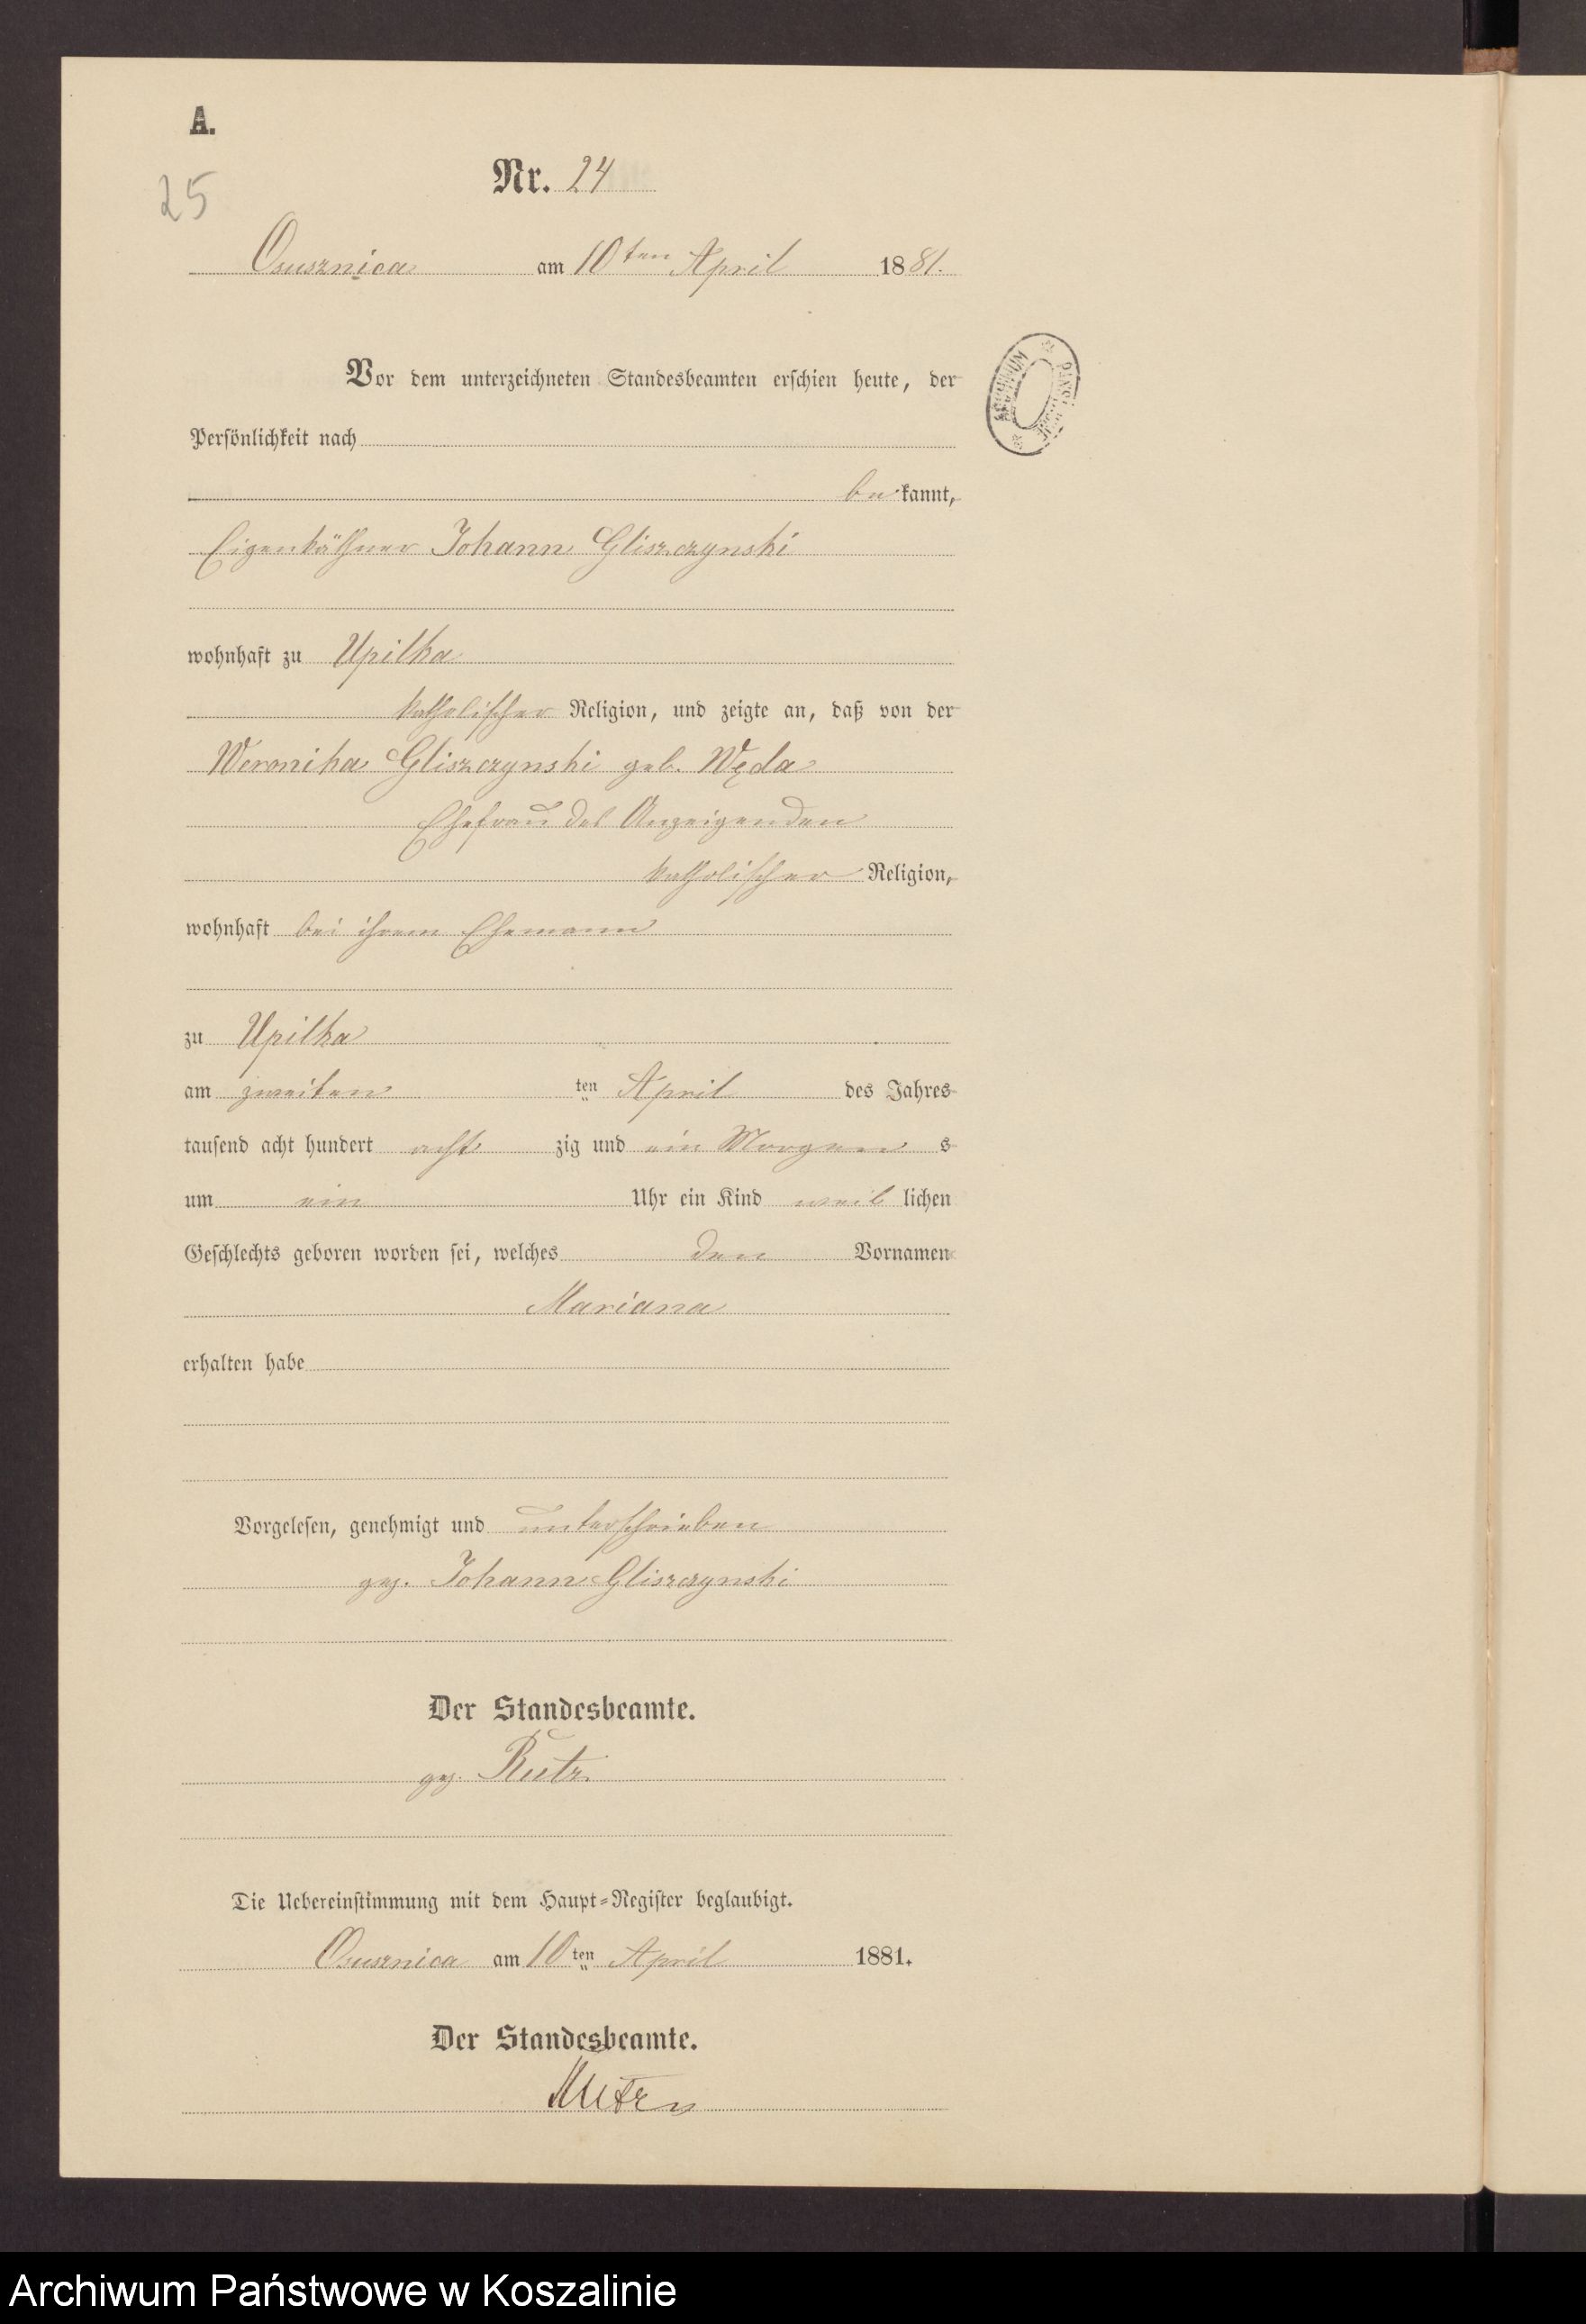 A.
25
Nr. 24
Osusznica am 10ten April 1881.
ARCHIWUM
Vor dem unterzeichneten Standesbeamten erschien heute, der
Persönlichkeit nach
bekannt,
Eigenkäthner Johann Gliszczynski
wohnhaft zu Upilka
katholischer Religion, und zeigte an, daß von der
Weronika Gliszczynski geb. Węda
Ehefrau des Anzeigenden
katholischer Religion,
wohnhaft bei ihrem Ehemann
zu Upilka
am zweiten ten April des Jahres
tausend acht hundert acht zig und ein Morgens
um ein Uhr ein Kind weiblichen
Geschlechts geboren worden sei, welches den Vornamen
Mariana
erhalten habe
Vorgelesen, genehmigt und unterschrieben
gez. Johann Gliszczynski
Der Standesbeamte.
gez. Rutz.
Die Uebereinstimmung mit dem Haupt-Register beglaubigt.
Osusznica am 10ten April 1881.
Der Standesbeamte.
Rutz
Archiwum Państwowe w Koszalinie